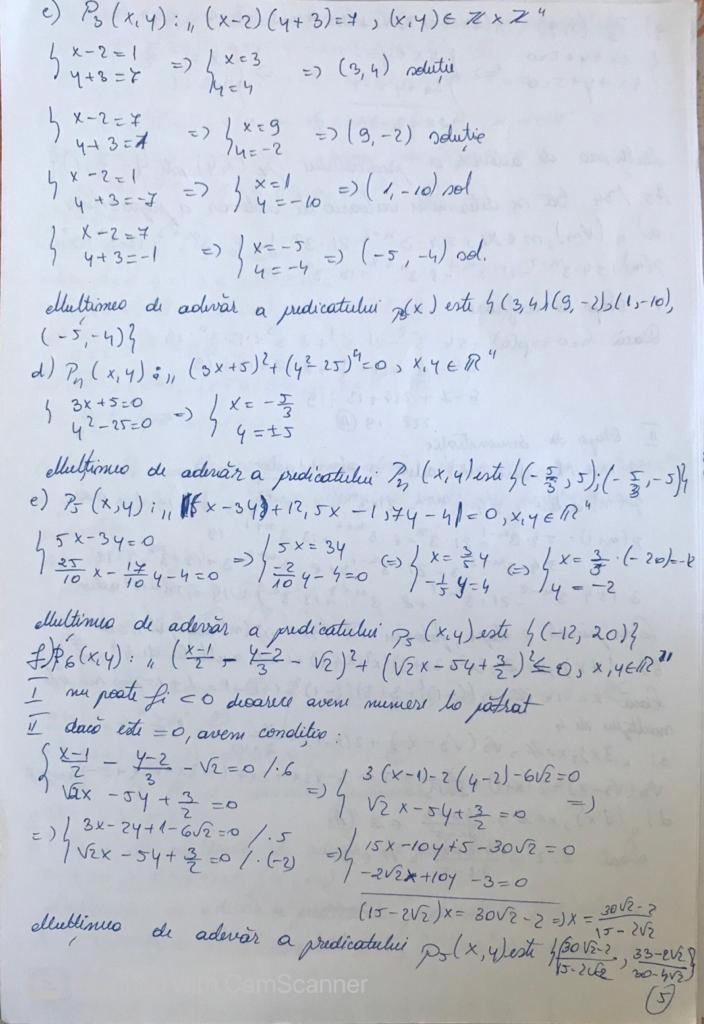 c) P₃(x,y): „(x-2)(y+3)=7, (x,y)∈ℤ×ℤ"
{ x-2=1 => { x=3 => (3,4) soluție
y+3=7 y=4
{ x-2=7 => { x=9 => (9,-2) soluție
y+3=1 y=-2
{ x-2=1 => { x=1 => (1,-10) sol
y+3=-7 y=-10
{ x-2=7 => { x=-5 => (-5,-4) sol.
y+3=-1 y=-4
Mulțimea de adevăr a predicatului p(x) este {(3,4)(9,-2),(1,-10),
(-5,-4)}
d) P₄(x,y): „(3x+5)²+(y²-25)⁴=0, x,y∈ℝ"
{ 3x+5=0 => { x=-5/3
y²-25=0 y=±5
Mulțimea de adevăr a predicatului P₄(x,y) este {(-5/3,5);(-5/3,-5)}
e) P₅(x,y): „|5x-3y|+|2,5x-1,7y-4|=0, x,y∈ℝ"
{ 5x-3y=0 => { 5x=3y (=) { x=3/5 y (=) { x=3/5·(-20)=-12
25/10 x-17/10 y-4=0 -2/10 y-4=0 -1/5 y=4 y=-2
Mulțimea de adevăr a predicatului P₅(x,y) este {(-12, 20)}
f) P₆(x,y): „((x-1)/2 - (y-2)/3 - √2)²+(√2x-5y+3/2)²≤0, x,y∈ℝ"
I nu poate fi <0 deoarece avem numere la pătrat
II dacă este =0, avem condiția:
{ (x-1)/2 - (y-2)/3 - √2=0 /·6 => { 3(x-1)-2(y-2)-6√2=0 =>
√2x-5y+3/2=0 √2x-5y+3/2=0
=> { 3x-2y+1-6√2=0 /·5 => { 15x-10y+5-30√2=0
√2x-5y+3/2=0 /·(-2) -2√2x+10y-3=0
(15-2√2)x=30√2-2 => x=(30√2-2)/(15-2√2)
Mulțimea de adevăr a predicatului P₅(x,y) este {(30√2-2)/(15-2√2), (33-2√2)/(30-4√2)}
5
with CamScanner